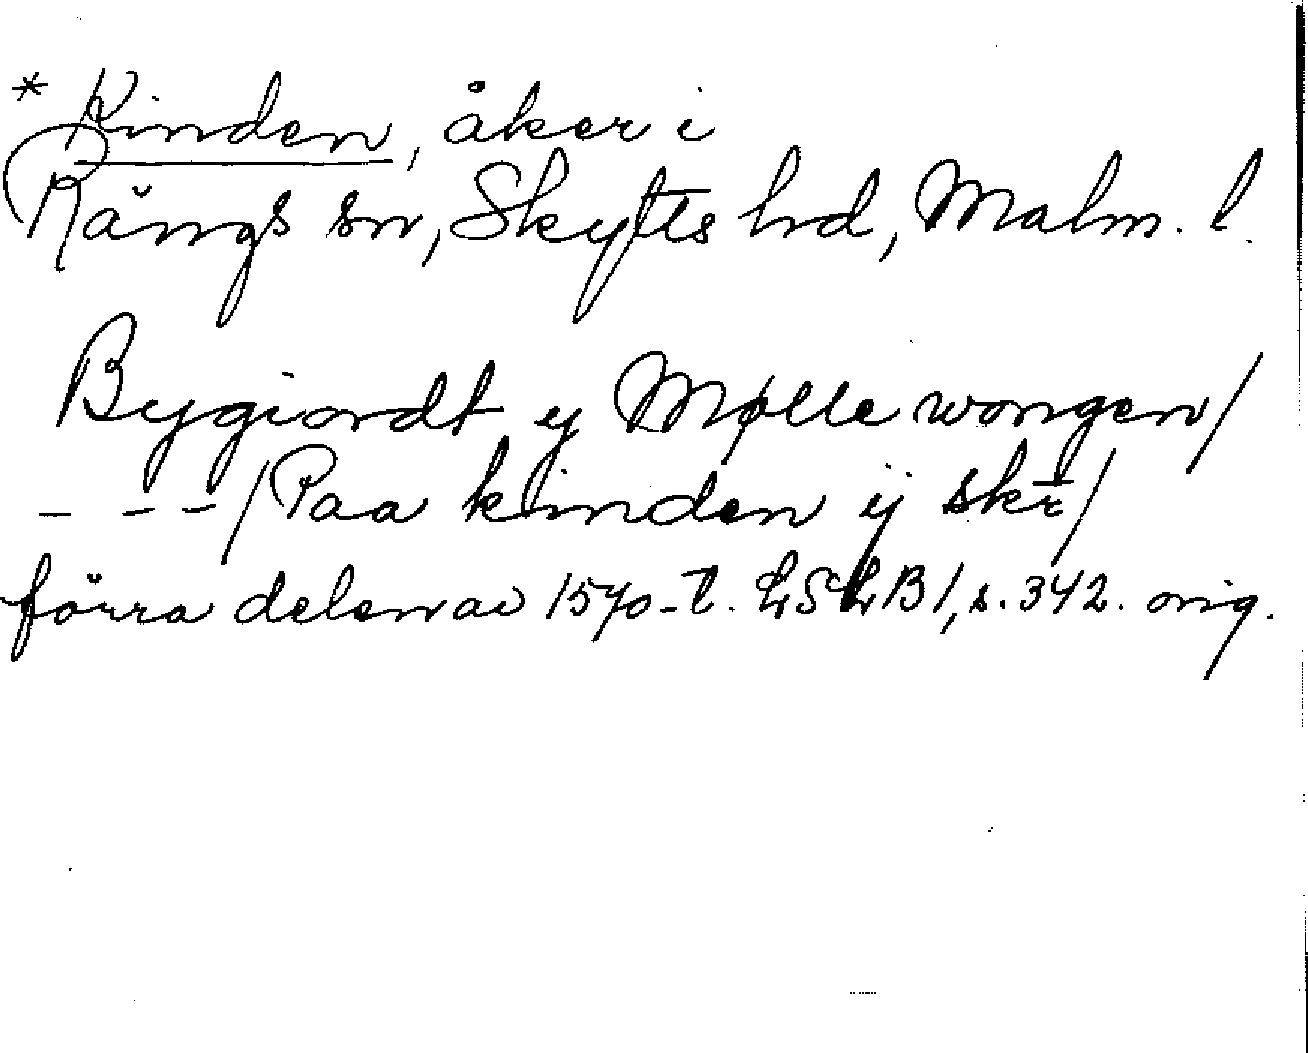 * Kinden, åker i
Rängs sn, Skytts hd, Malm. l.
Bygiordt y Mølle wongen/
- - -/ Paa kinden ij skr̄/
förra delen av 1570-t. LSLB 1, s. 342. orig.